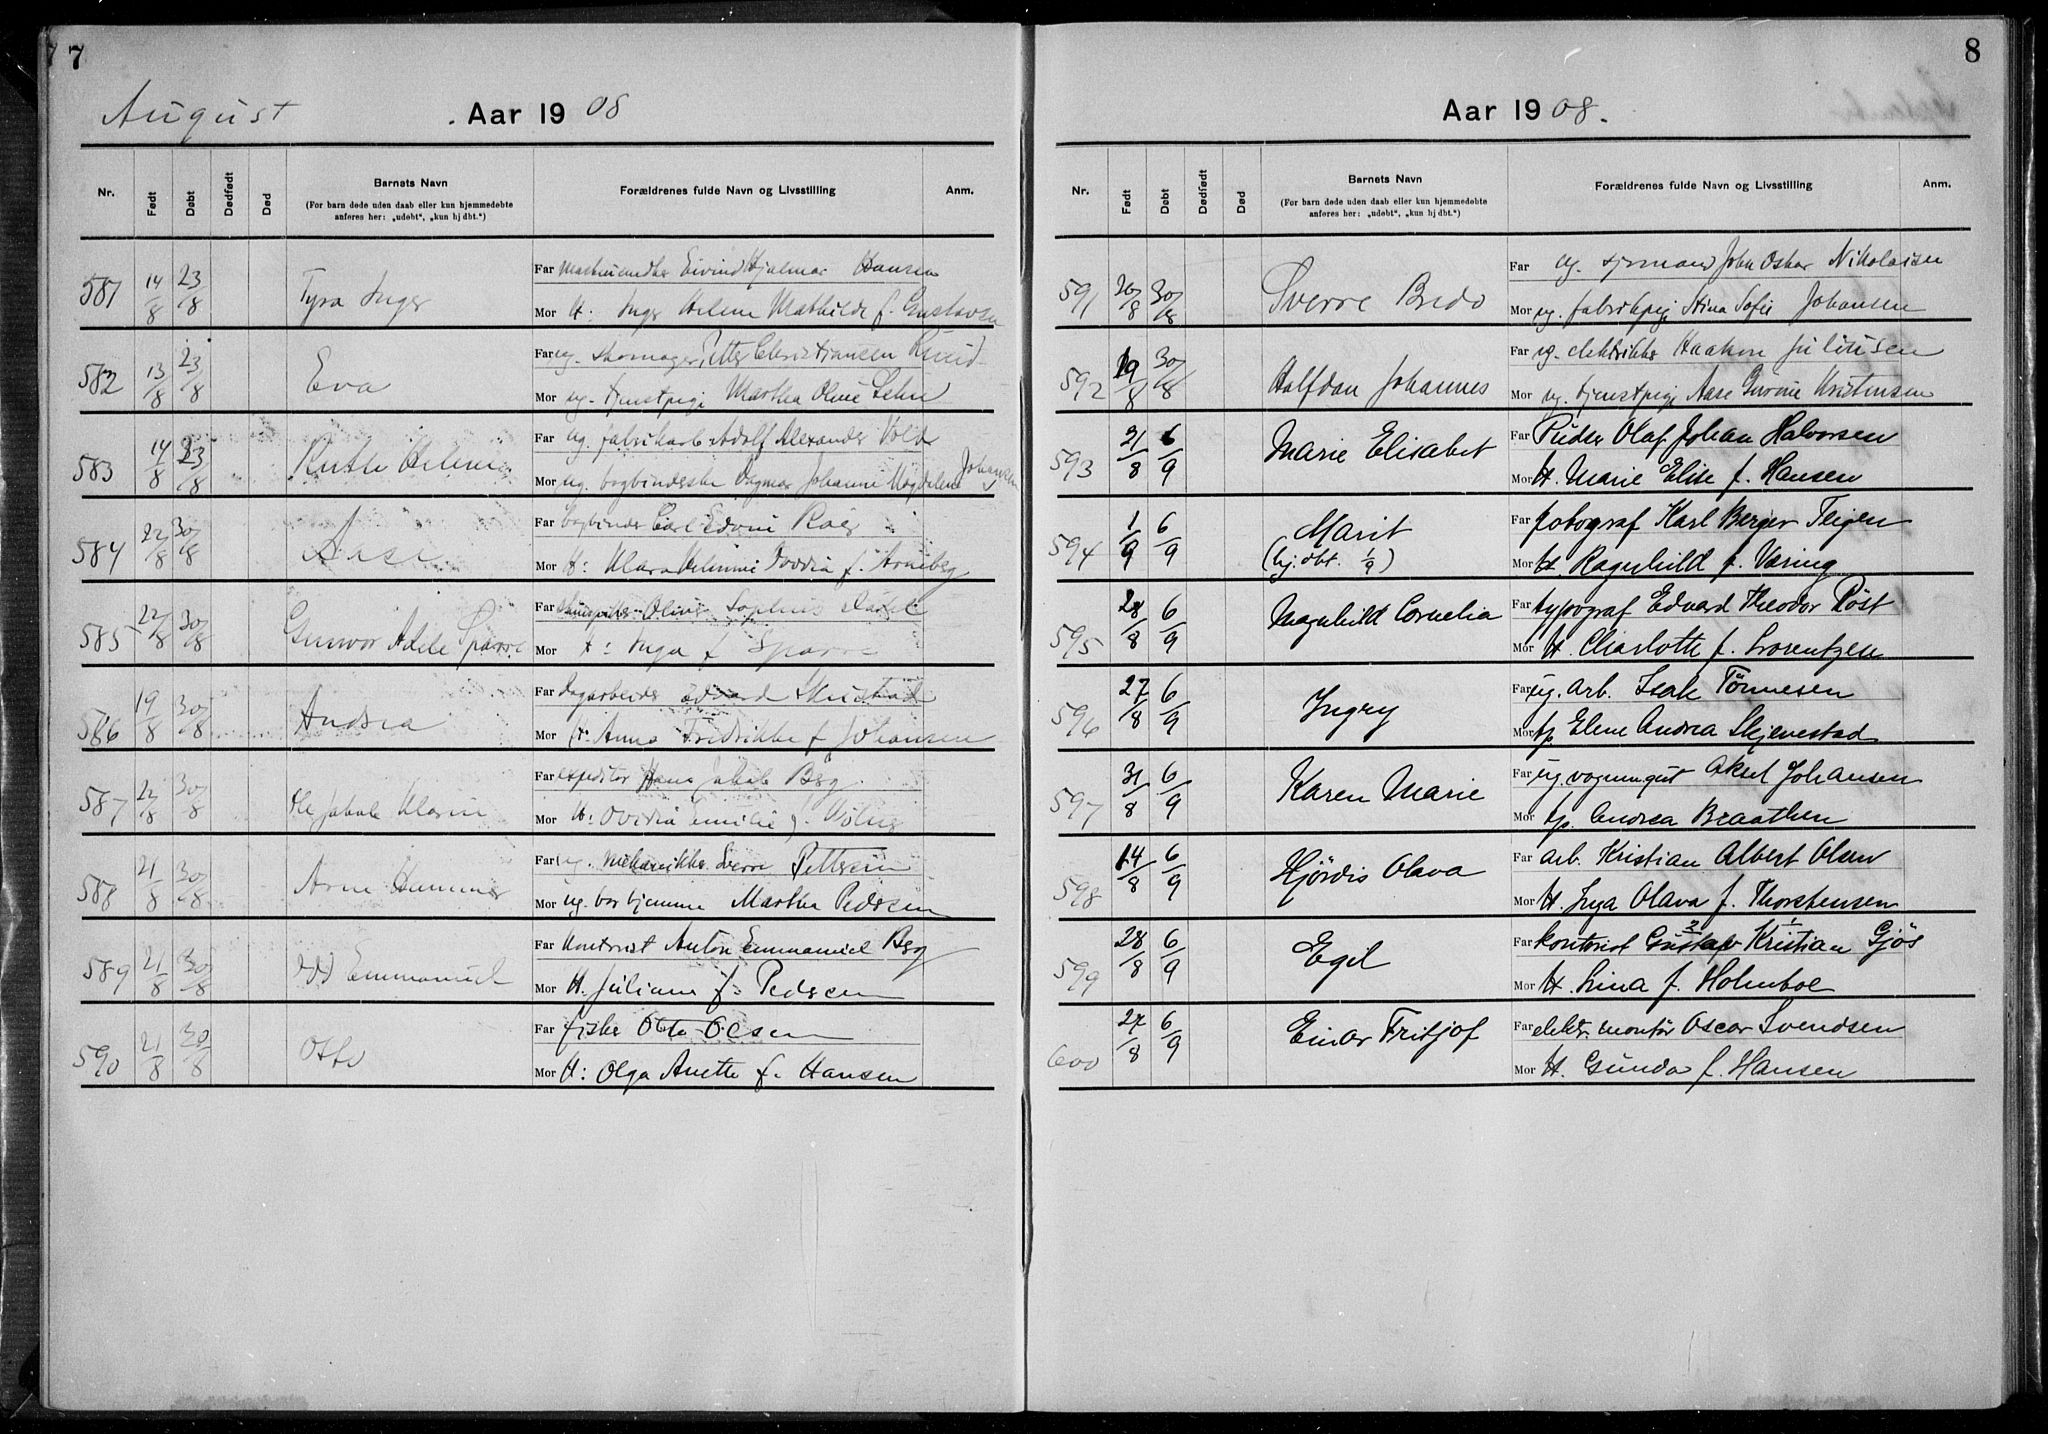 7
August Aar 1908
Nr. Født Døbt Dødfødt Død Barnets Navn Forældrenes fulde Navn og Livsstilling Anm.
(For barn døde uden daab eller kun hjemmedøbte
anføres her: „udøbt“, „kun hj dbt.“)
581 14/8 23/8 Tyra Inger
Far Eivind Hjalmar Hansen
Mor H: Inger Helene Mathilde f. Gustavsen
582 13/8 23/8 Eva
Far ug. skomager Petter Christiansen
Mor ug. tjenstpige Martha Oline Lehn
583 14/8 23/8 Ruth Helene
Far ug. fabrikarb. Adolf Alexander Vold
Mor ug. bogbinderske Dagmar Johanne Magdalene Johansen
584 22/8 30/8 Aase
Far bogbinder Carl Edvin
Mor H: Klara f. Arneberg
585 22/8 30/8 Gunvor Adele Sparre
Far Oliver Sophus
Mor H: Inga f. Sparre
586 19/8 30/8 Andrea
Far Dagarbeider Edvard
Mor H: Anna Fredrikke f. Johansen
587 22/8 30/8 Ole Jakob
Far expeditør Hans Jakob Berg
Mor H: Ovidia Emilie f.
588 21/8 30/8 Arne
Far ug. mekaniker Sverre Pettersen
Mor ug. Martha Pedersen
589 21/8 30/8 Emmanuel
Far kontorist Anton Emmanuel Berg
Mor H. Juliane f. Pedersen
590 21/8 30/8 Otto
Far fisker Otto Olsen
Mor H: Olga Anette f. Hansen
8
Aar 1908.
Nr. Født Døbt Dødfødt Død Barnets Navn Forældrenes fulde Navn og Livsstilling Anm.
(For barn døde uden daab eller kun hjemmedøbte
anføres her: „udøbt“, „kun hj dbt.“)
591 20/8 30/8 Sverre Bredo
Far ug. sjømand John Oskar Nikolaisen
Mor ug. fabrikpige Stina Sofie Johansen
592 19/8 30/8 Halfdan Johannes
Far ug. elektriker Haakon Juliusen
Mor ug. tjenstpige Aase Kristensen
593 21/8 6/9 Marie Elisabet
Far Pudser Olaf Johan Halvorsen
Mor H. Marie Elise f. Hansen
594 1/9 6/9 Marit
(hj. dbt. 1/9)
Far fotograf Karl Berger Teigen
Mor H. Ragnhild f. Væring
595 28/8 6/9 Magnhild Cornelia
Far typograf Edvard Theodor Röst
Mor H. Charlotte f. Lorentzen
596 27/8 6/9 Ingry
Far ug. arb. Isak Tönnesen
Mor tp. Elene Andrea Skjevestad
597 31/8 6/9 Karen Marie
Far ug. vognmgut Aksel Johansen
Mor tp. Andrea Braathen
598 14/8 6/9 Hjördis Olava
Far arb. Kristian Albert Olsen
Mor H. Inga Olava f. Thorstensen
599 28/8 6/9 Egil
Far kontorist Gustav Kristian Gjös
Mor H. Lina f. Holmboe
600 27/8 6/9 Einar Fritjof
Far elektr. montör Oscar Svendsen
Mor H. Gunda f. Hansen